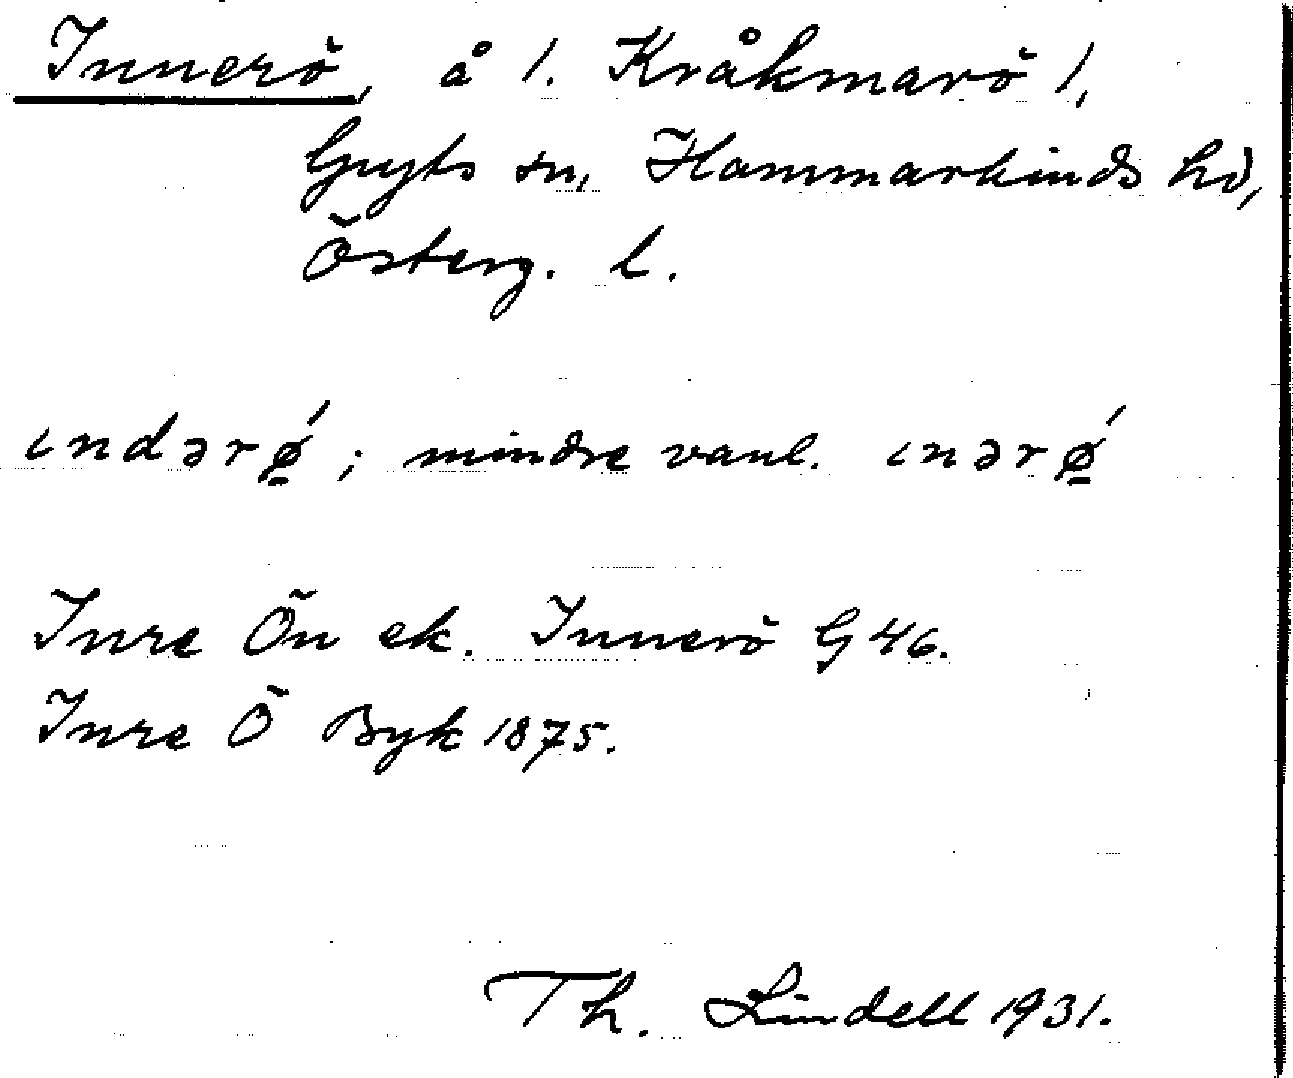 Innerö, å 1. Kråkmarö 1,
Gryts sn, Hammarkinds hd,
Österg. l.
ındərǿ̱; mindre vanl. ınərǿ̱
Inre Ön ek. Innerö G 46.
Inre Ö Byk 1875.
Th. Lindell 1931.